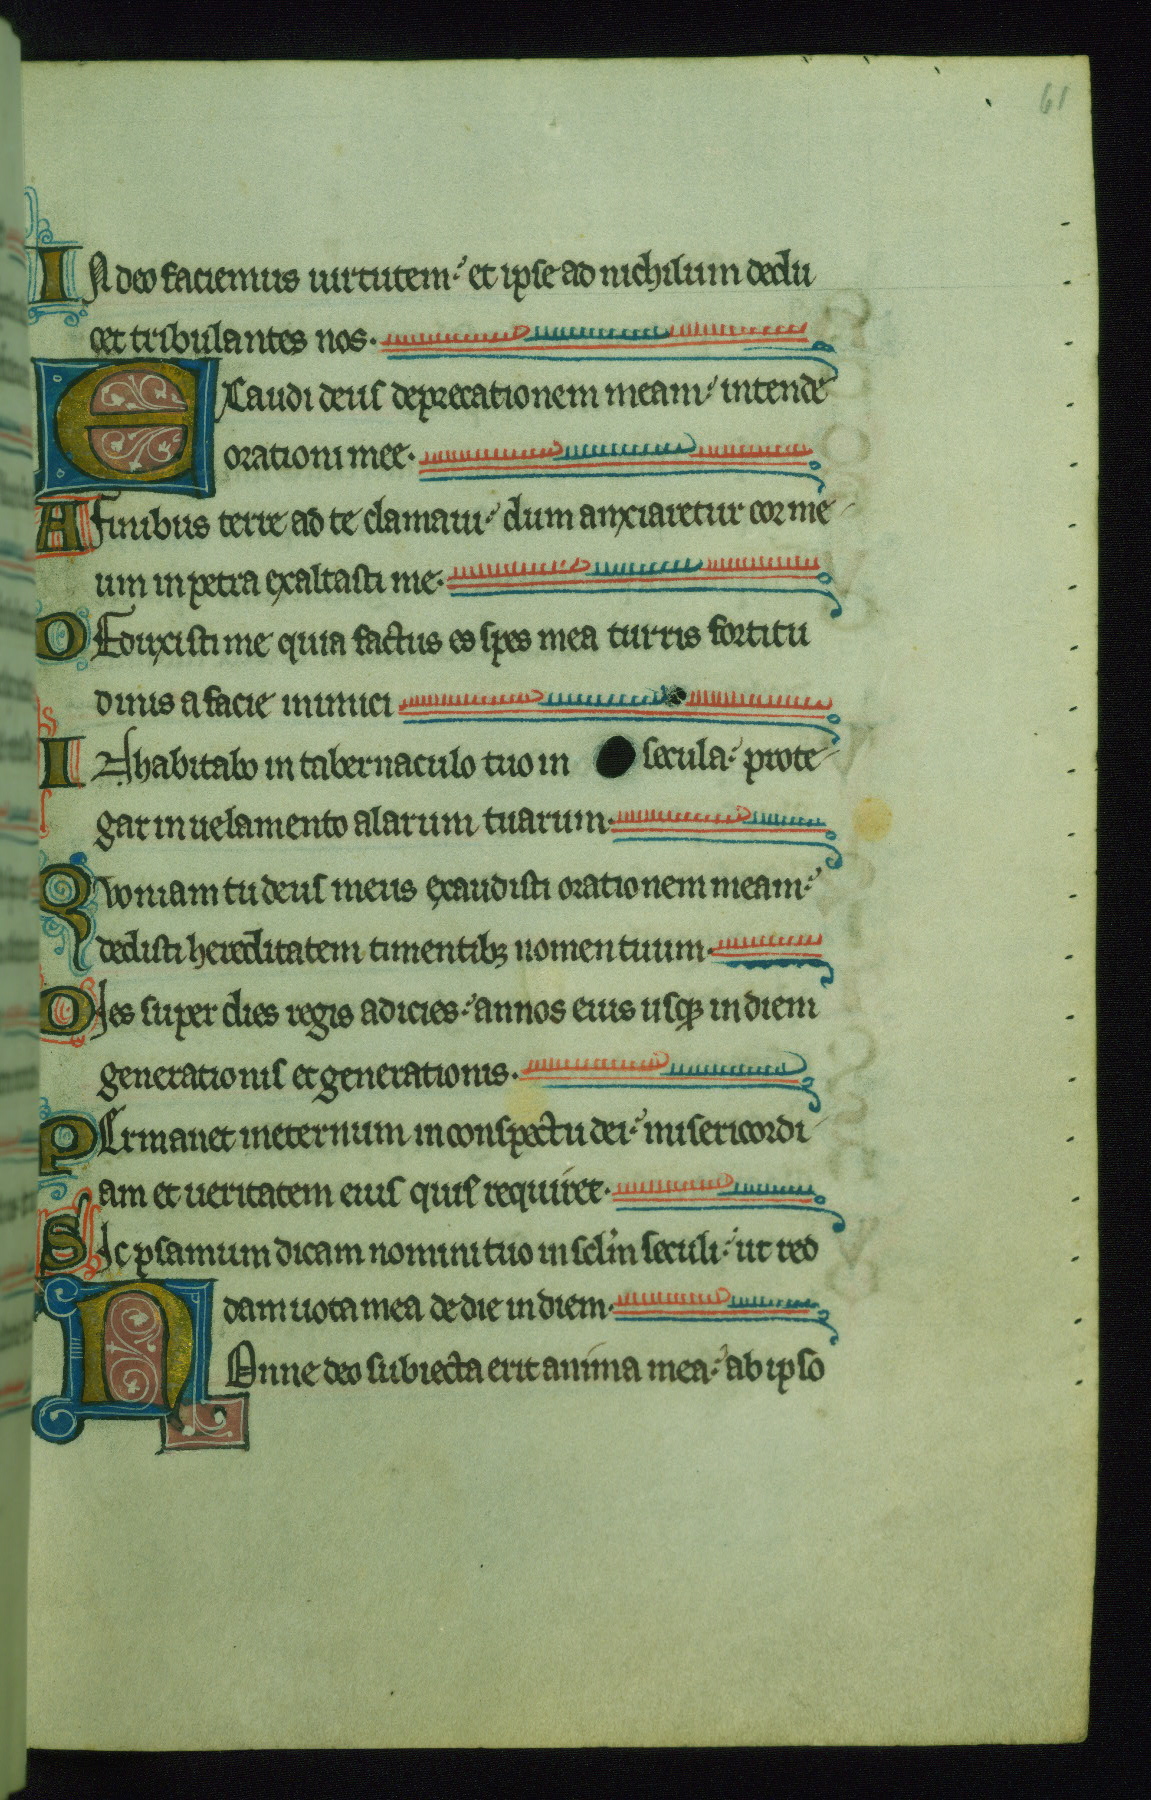 61
IN deo faciemus uirtutem⸵ et ipse ad nichilum dedu
cet tribulantes nos.
EXaudi deus deprecationem meam⸵ intende
orationi mee.
A finibus terre ad te clamaui⸵ dum anxiaretur cor me
um in petra exaltasti me.
DEduxisti me quia factus es spes mea turris fortitu
dinis a facie inimici
INhabitabo in tabernaculo tuo in secula⸵ prote
gar in uelamento alarum tuarum.
QVoniam tu deus meus exaudisti orationem meam⸵
dedisti hereditatem timentibꝫ nomen tuum.
DIes super dies regis adicies⸵ annos eius usqꝫ in diem
generationis et generationis.
PErmanet ineternum in conspectu dei⸵ misericordi
am et ueritatem eius quis requiret.
SIc psamum dicam nomini tuo in sclm̄ seculi⸵ ut red
dam uota mea de die in diem.
NOnne deo subiecta erit anima mea⸵ ab ipso